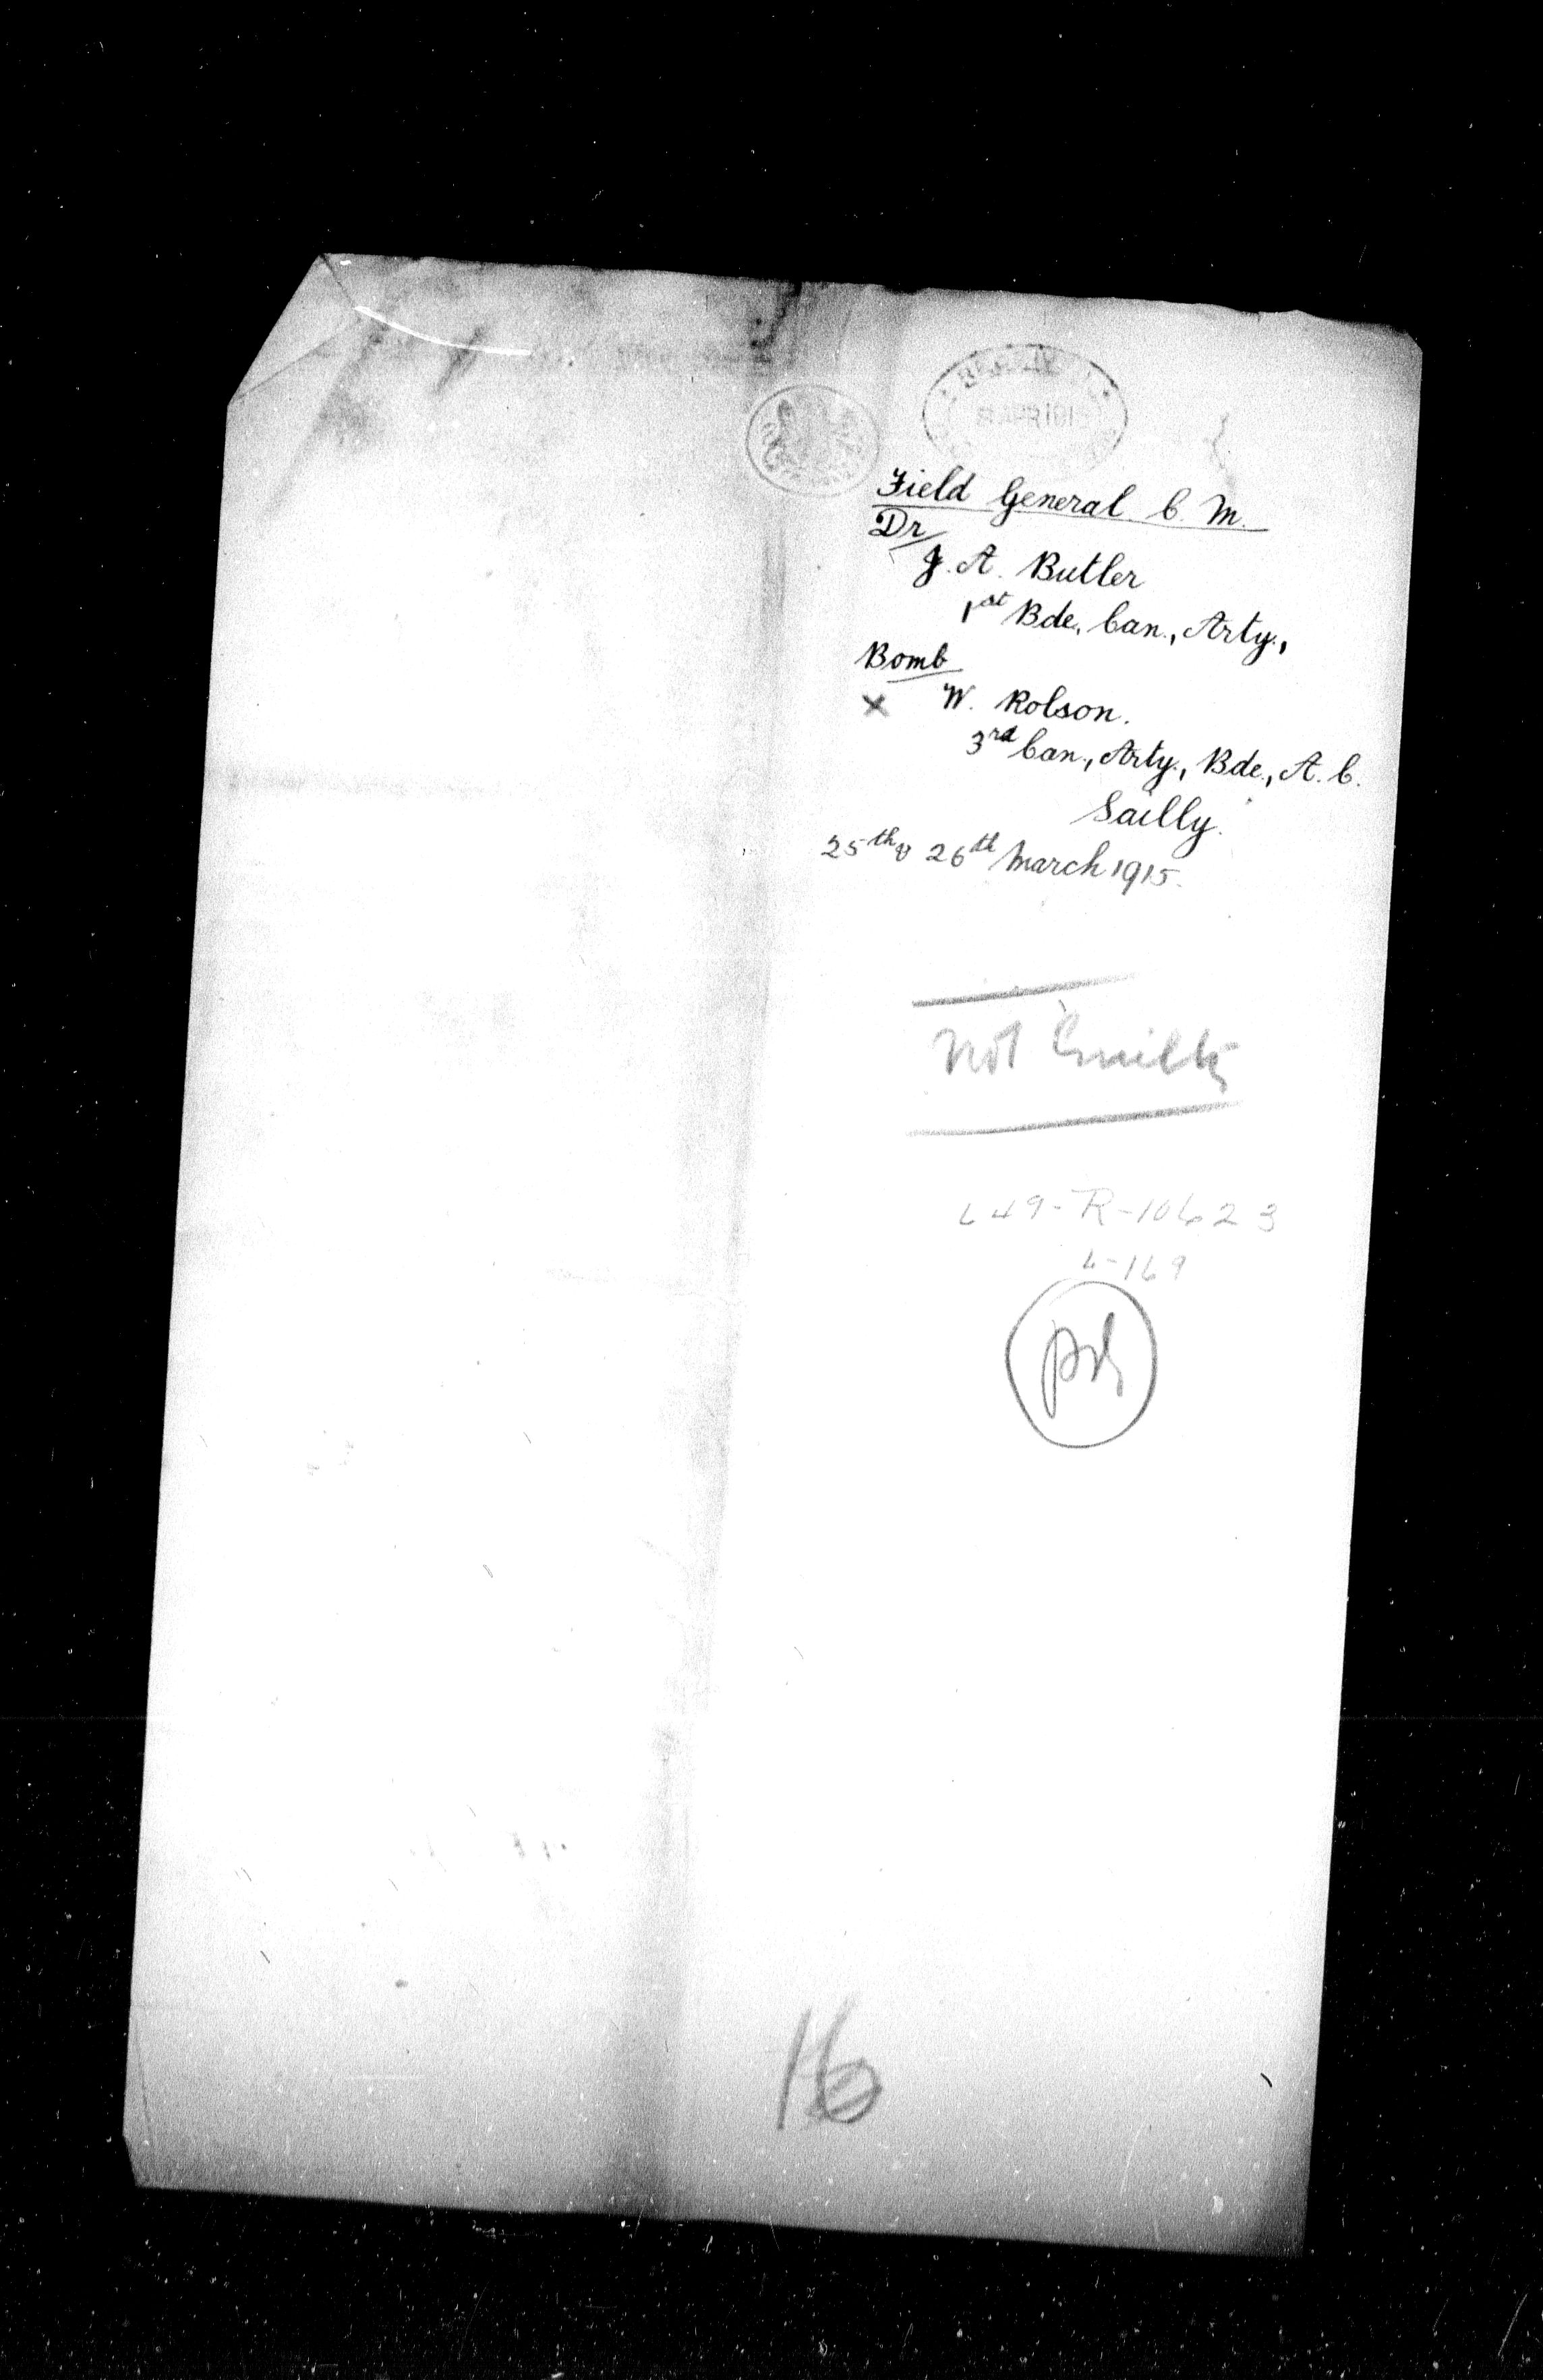 8 APR 191
Field General C. M.
Dr
J. A. Butler
1st Bde, Can., Arty.,
Bomb
x W. Rolson.
3rd Can., Arty., Bde., A. C.
Sailly.
25th & 26th March 1915.
Not Guilty
649-R-10623
6-169
16